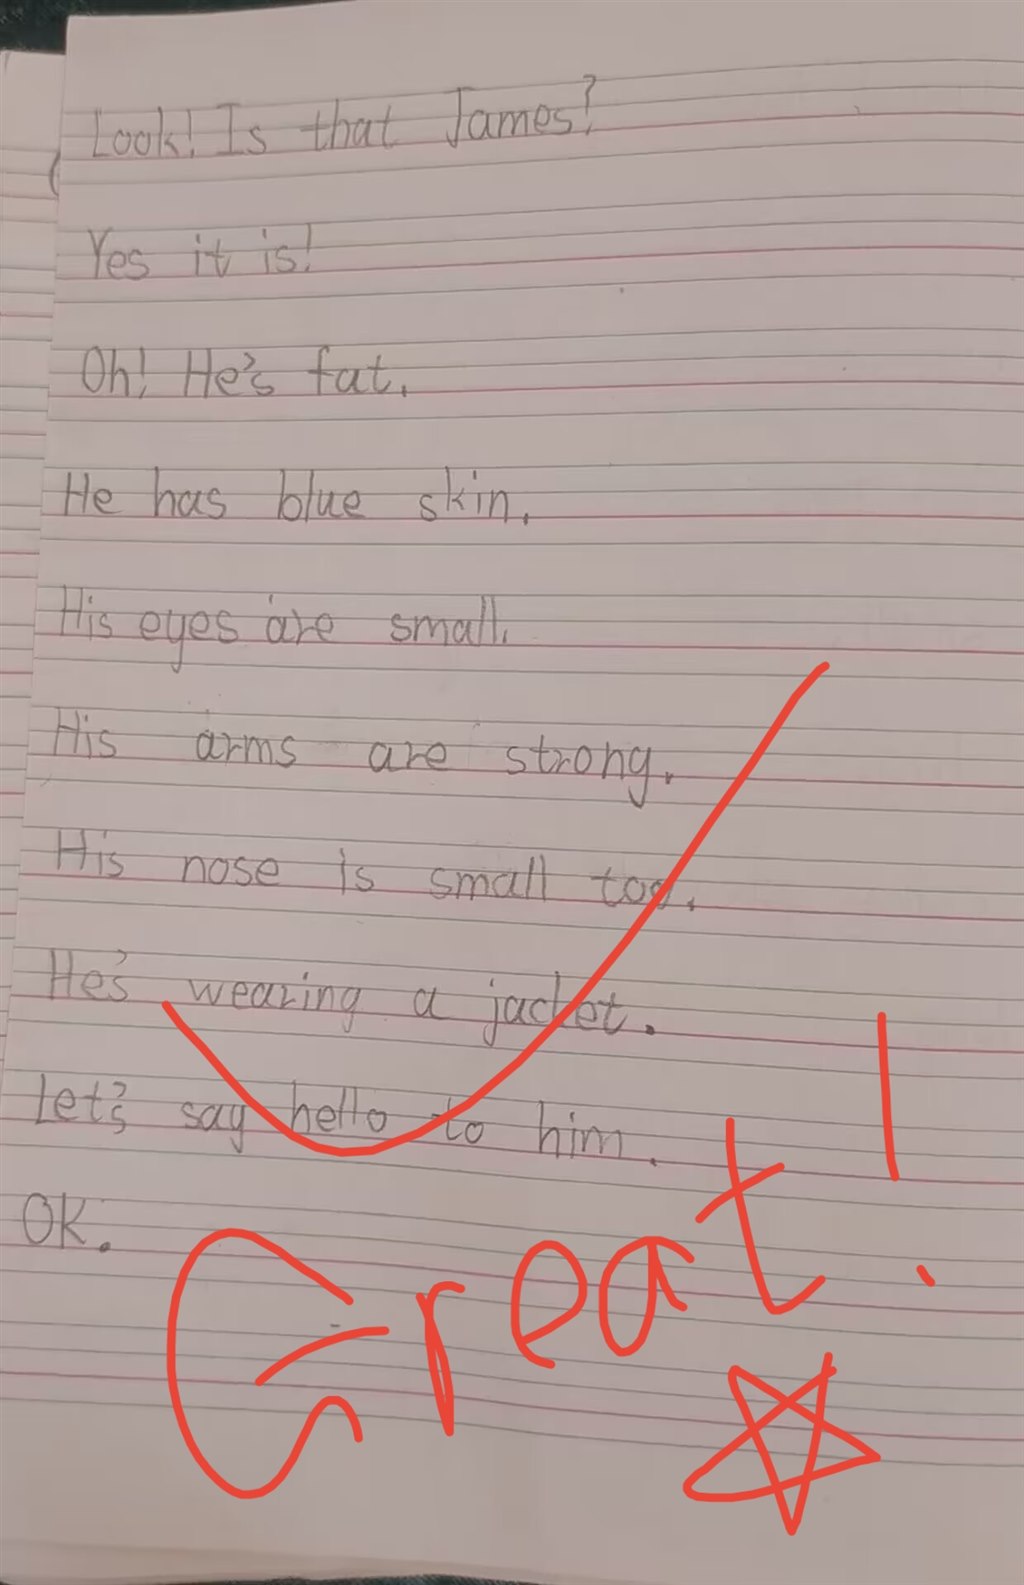 Look! Is that James?
Yes it is!
Oh! He's fat.
He has blue skin.
His eyes are small.
His arms are strong.
His nose is small too.
He's wearing a jacket.
Let's say hello to him.
OK.
Great!